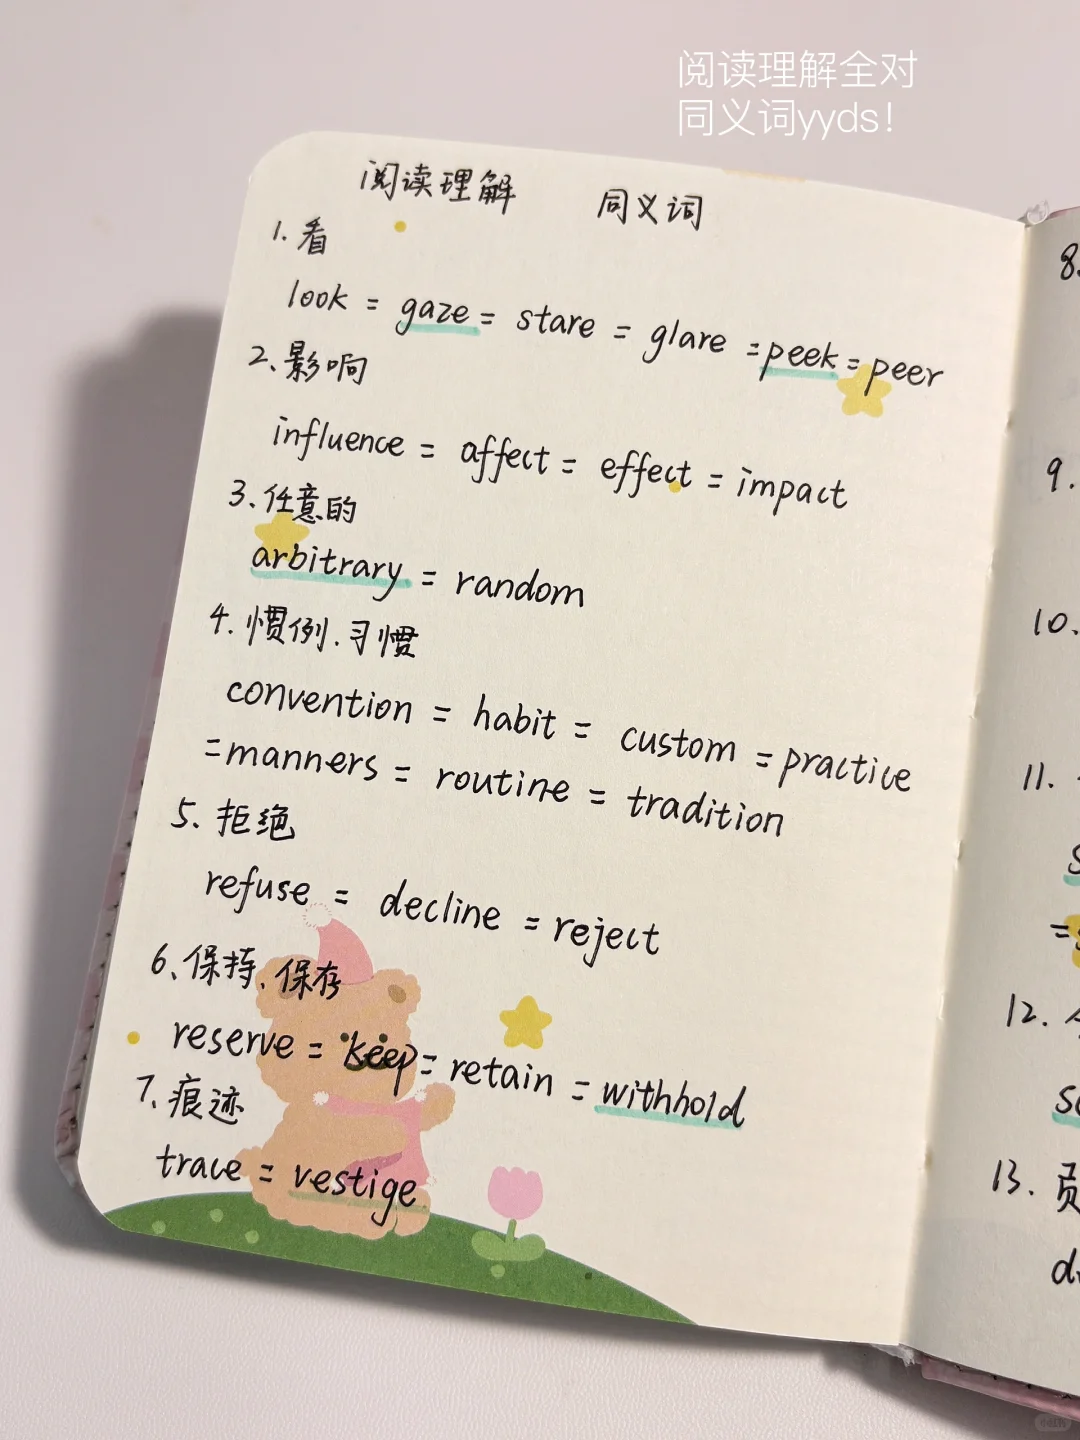 阅读理解全对
同义词yyds!
阅读理解 同义词
1. 看
look = gaze = stare = glare = peek = peer
2、影响
influence = affect = effect = impact
3、任意的
arbitrary = random
4. 惯例、习惯
convention = habit = custom = practice
= manners = routine = tradition
5、拒绝
refuse = decline = reject
6、保持、保存
reserve = keep = retain = withhold
7、痕迹
trace = vestige
8.
9.
10.
11.
12.
13.